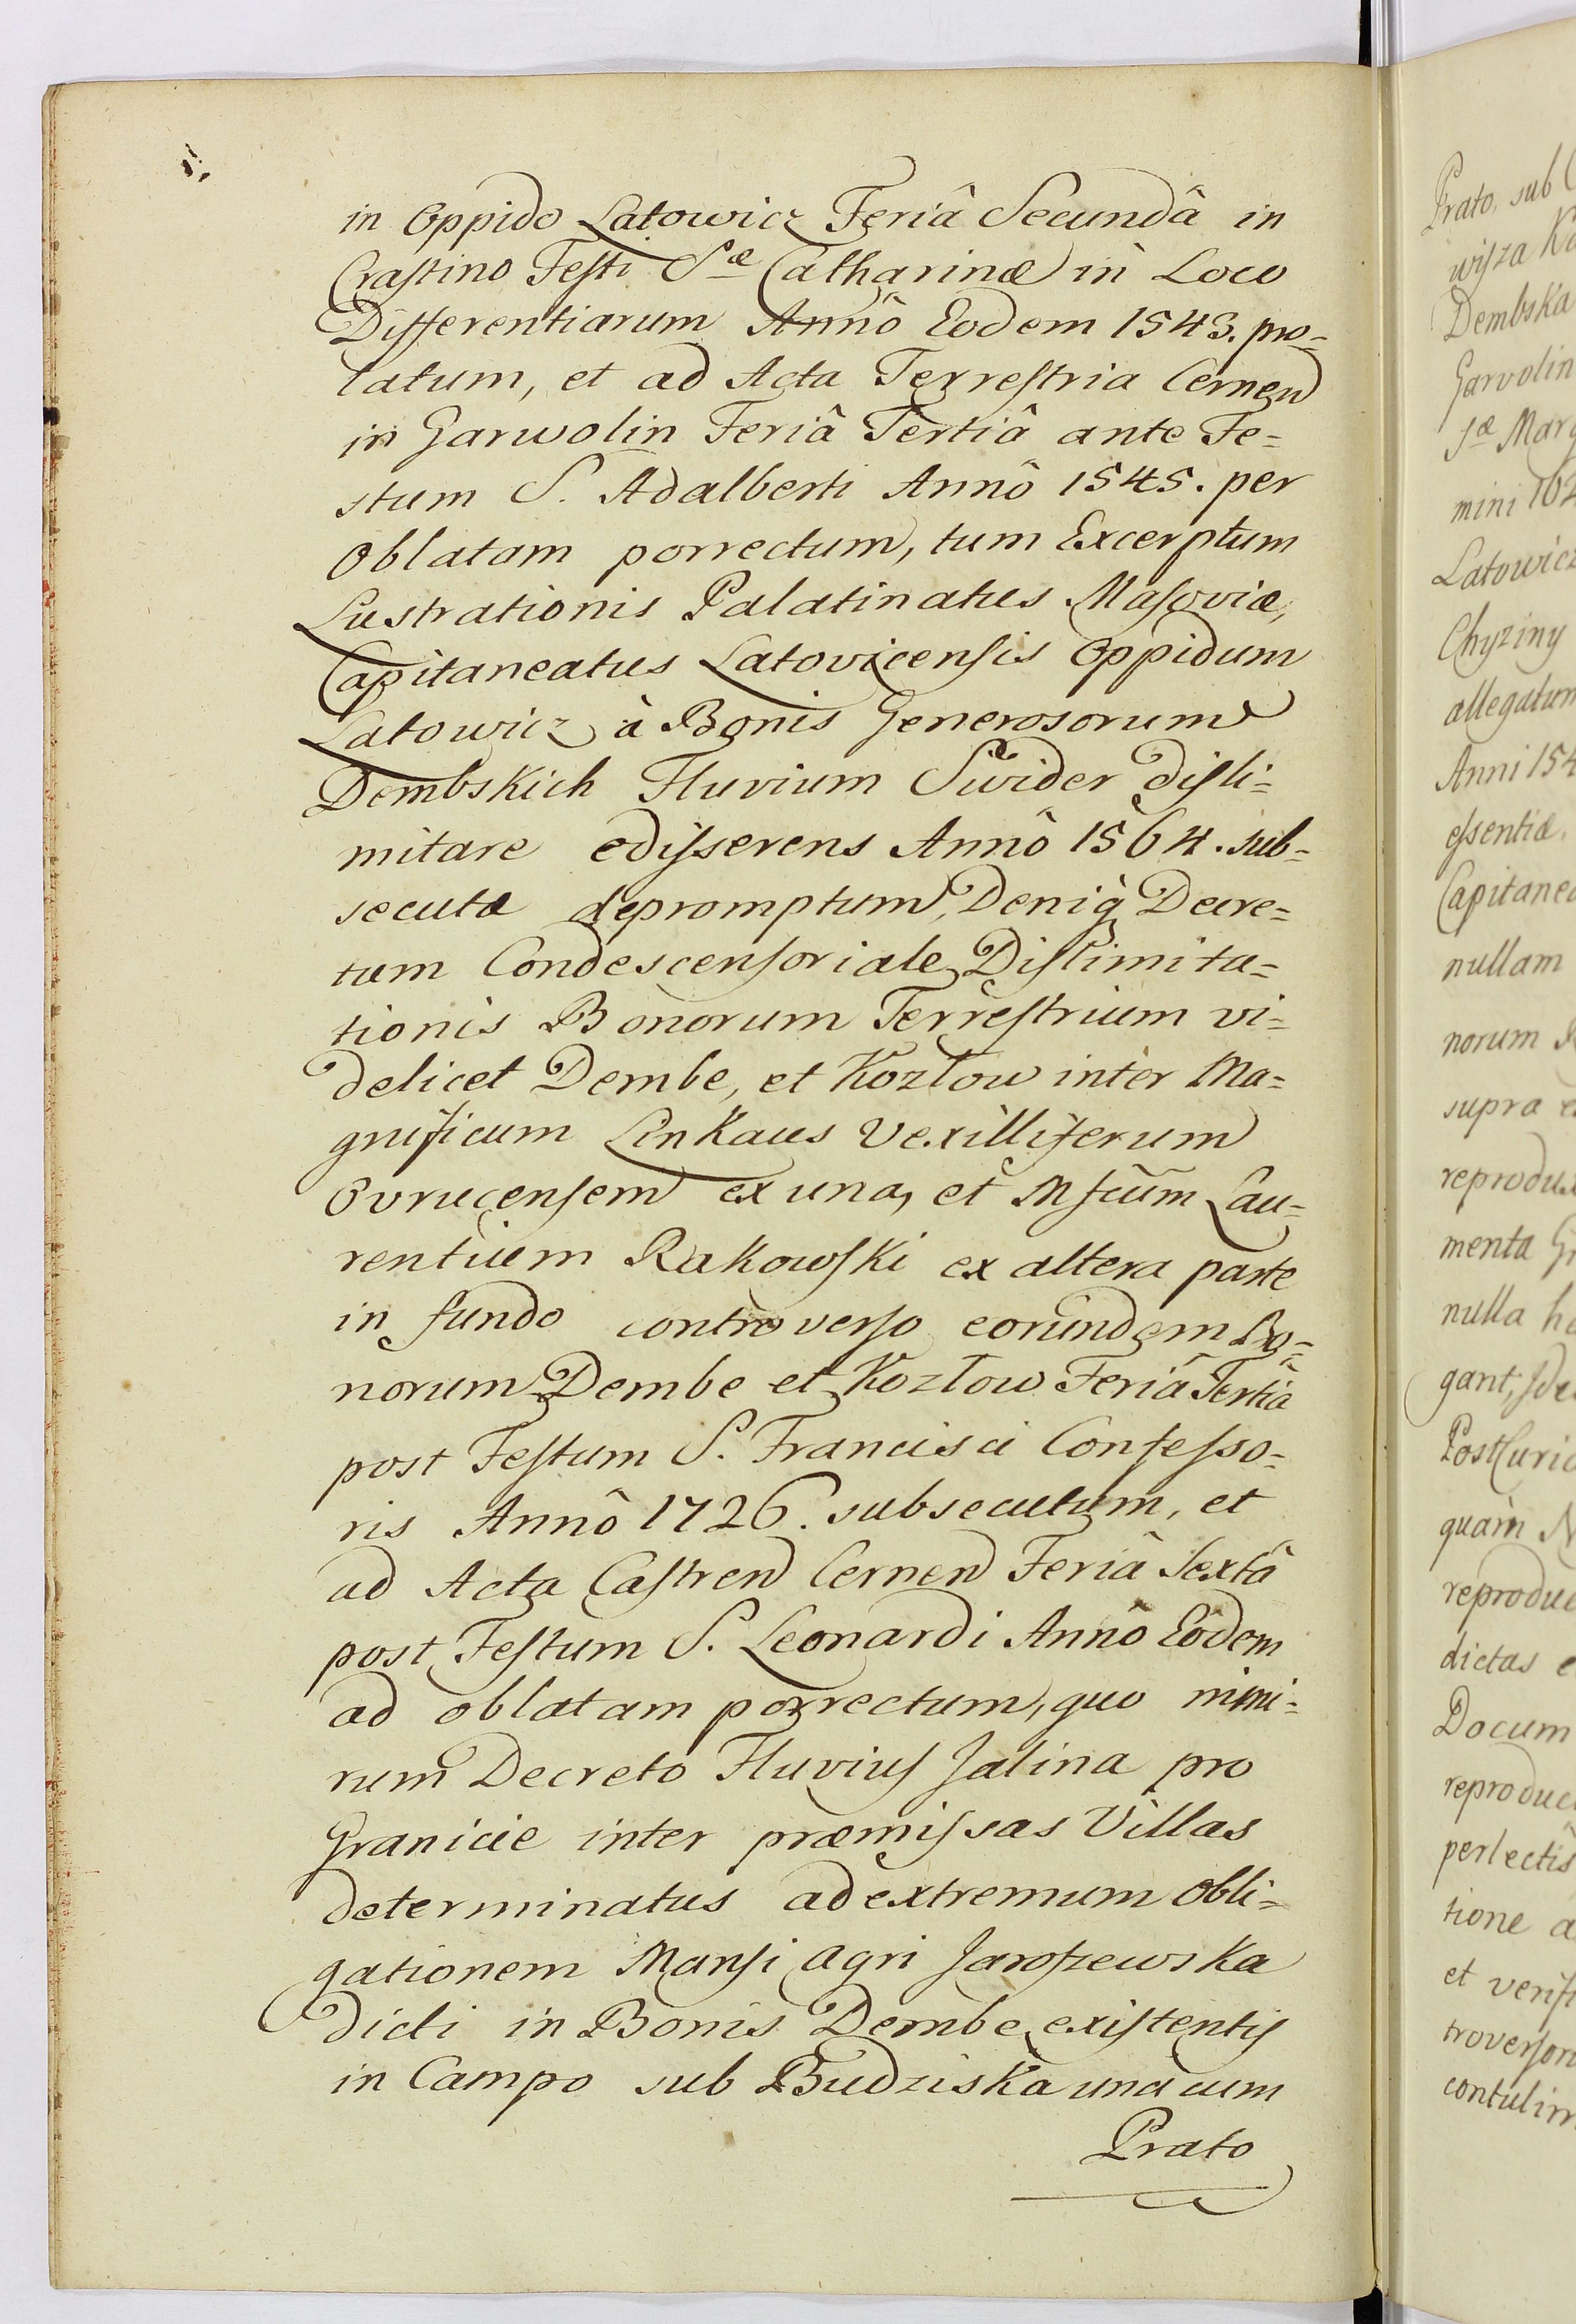 in Oppido Latowicz Feriâ Secundâ in
Craſtino Feſti Sæ Catharinæ in Loco
Differentiarum Annô Eodem 1543. pro=
latum, et ad Acta Terreſtria Cernen
in Garwolin Feriâ Tertiâ ante Fe=
stum S. Adalberti Annô 1545. per
Oblatam porrectum, tum Excerptum
Lustrationis Palatinatus Maſoviæ,
Capitaneatus Latovicenſis Oppidum
Latowicz à Bonis Generosorum
Dembskich Fluvium Swider diſli=
mitare ediſserens Annô 1564. sub=
secutæ depromptum, Deniq̀ Decre=
tum Condescenſoriale Diſlimita=
tionis Bonorum Terreſtrium vi=
delicet Dembe, et Kozłow inter Ma=
gnificum Linkaus Vexilliferum
Ovrucenſem ex una, et Mfcum Lau=
rentium Rakowſki ex altera parte
in fundo controverſo eorundem Bo=
norum Dembe et Kozłow Feriâ Tertiâ
post Feſtum S. Francisci Confeſso=
ris Annô 1726. subsecutum, et
ad Acta Caſtren Cernen Feriâ Sextâ
post Feſtum S. Leonardi Annô Eodem
ad oblatam porrectum, quo nimi=
rum Decreto Fluviuſ Jalina pro
Granicie inter præmiſsas Villas
determinatus ad extremum Obli=
gationem Manſi agri Jaroſzewska
dicti in Bonis Dembe exiſtentiſ
in Campo sub Budziska una cum
Prato
Prato, sub
wiſza
Dembska
Garvolin
Sæ Marg
mini 162
Latowicz
Chyziny
allegatum
Anni 154
eſsentiæ,
Capitanea
nullam
norum
supra
reprodux
menta
nulla
gant,
quàm
reproduc
dictas
Docum
reproduc
perlectis
tione a
et verif
troverſor
contulim